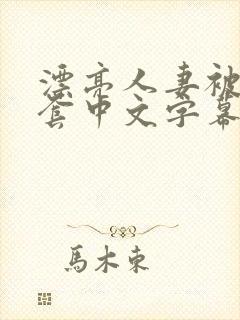 漂亮人妻被
套中文字幕
馬木東